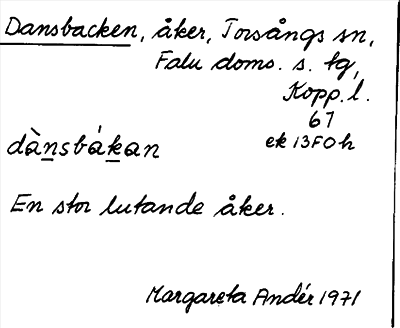 Dansbacken, åker, Torsångs sn,
Falu doms. s. tg,
Kopp. l.
67
dànsbákan ek 13F0h
En stor lutande åker.
Margareta Andér 1971